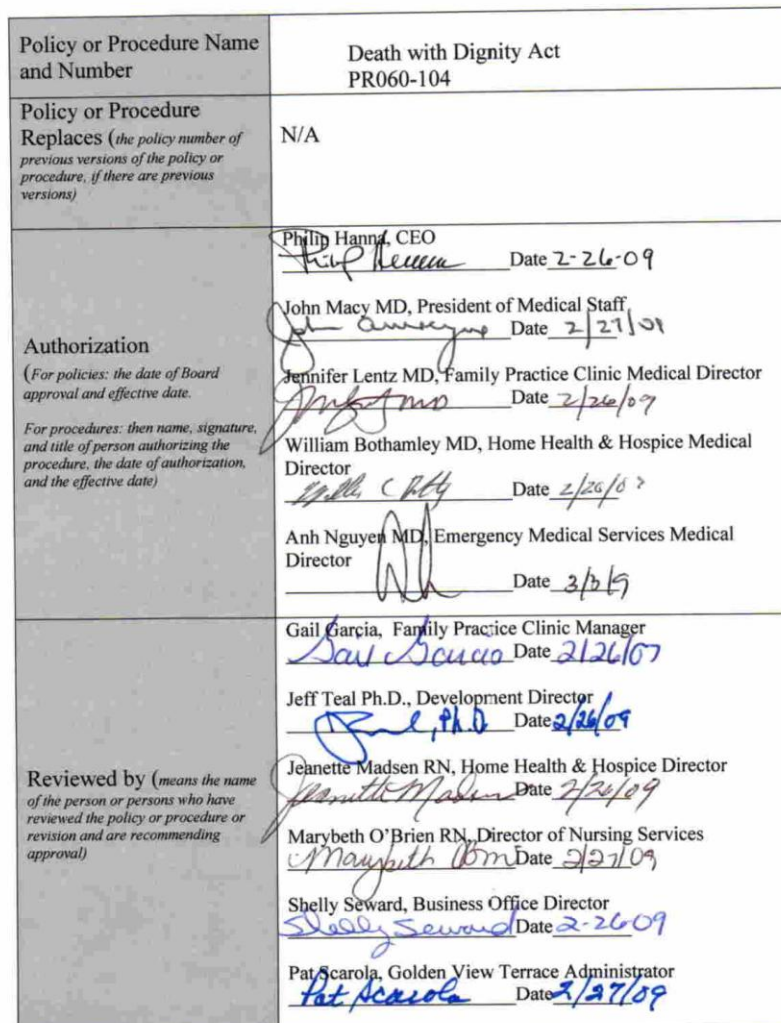 Policy or Procedure Name
and Number
Death with Dignity Act
PR060-104
Policy or Procedure
Replaces (the policy number of
previous versions of the policy or
procedure, if there are previous
versions)
N/A
Authorization
(For policies: the date of Board
approval and effective date.
For procedures: then name, signature,
and title of person authorizing the
procedure, the date of authorization,
and the effective date)
Philip Hanna, CEO
Date 2-26-09
John Macy MD, President of Medical Staff
Date 2/27/09
Jennifer Lentz MD, Family Practice Clinic Medical Director
Date 2/26/09
William Bothamley MD, Home Health & Hospice Medical
Director
Date
Anh Nguyen MD, Emergency Medical Services Medical
Director
Date 3/3/9
Reviewed by (means the name
of the person or persons who have
reviewed the policy or procedure or
revision and are recommending
approval)
Gail Garcia, Family Practice Clinic Manager
Gail Garcia Date 2/26/07
Jeff Teal Ph.D., Development Director
, Ph.D Date 2/26/09
Jeanette Madsen RN, Home Health & Hospice Director
Jeanette Madsen Date 2/26/09
Marybeth O'Brien RN, Director of Nursing Services
Marybeth Date 2/27/09
Shelly Seward, Business Office Director
Shelly Seward Date 2-26-09
Pat Scarola, Golden View Terrace Administrator
Pat Scarola Date 2/27/09